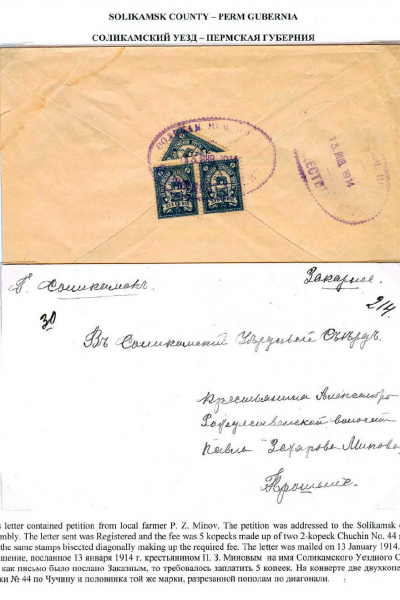 SOLIKAMSK COUNTY – PERM GUBERNIA
СОЛИКАМСКИЙ УЕЗД – ПЕРМСКАЯ ГУБЕРНИЯ
13 ЯНВ. 1914
Г. Соликамск.
Заказное.
30
214.
Въ Соликамскій Уѣздный Съѣздъ.
Крестьянина Александро
волости
Павла Захарова Минова
Прошение.
letter contained petition from local farmer P. Z. Minov. The petition was addressed to the Solikamsk
mbly. The letter sent was Registered and the fee was 5 kopecks made up of two 2-kopeck Chuchin No. 44 s
the same stamps bisected diagonally making up the required fee. The letter was mailed on 13 January 1914.
шение, посланное 13 января 1914 г. крестьянином П. З. Миновым на имя Соликамского Уездного С
как письмо было послано Заказным, то требовалось заплатить 5 копеек. На конверте две двухкопе
ки № 44 по Чучину и половинка той же марки, разрезанной пополам по диагонали.